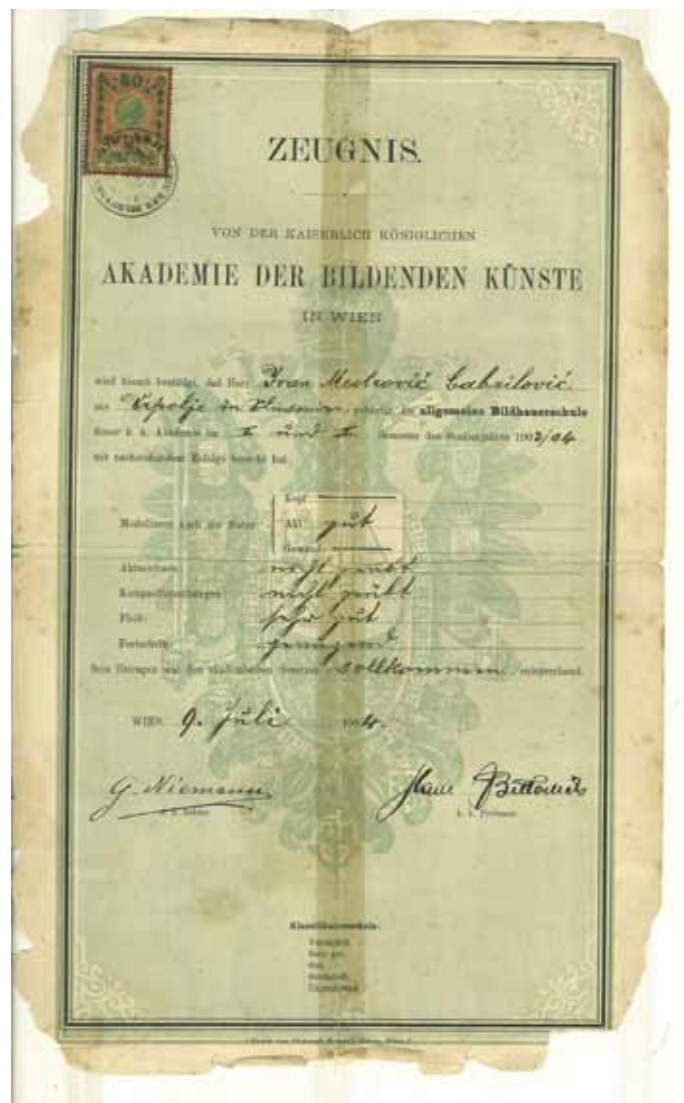 50
ZEUGNIS.
VON DER KAISERLICH KÖNIGLICHEN
AKADEMIE DER BILDENDEN KÜNSTE
IN WIEN
wird hiemit bestätigt, daß Herr Ivan Mestrović Gabrilović
aus Vrpolje in Slavonien gebürtig, die allgemeine Bildhauerschule
dieser k. k. Akademie im I und II Semester des Studienjahres 1903/04
mit nachstehendem Erfolge besucht hat:
Kopf
Modellieren nach der Natur: Akt gut
Gewand
Aktzeichnen: nicht geübt
Kompositionsübungen: nicht geübt
Fleiß: sehr gut
Fortschritt: genügend
Sein Betragen war den akademischen Gesetzen vollkommen entsprechend.
WIEN, 9. Juli 1904.
G. Niemann Hans Bitterlich
d. z. Rektor k. k. Professor
Klassifikationsskala:
Vorzüglich
Sehr gut
Gut